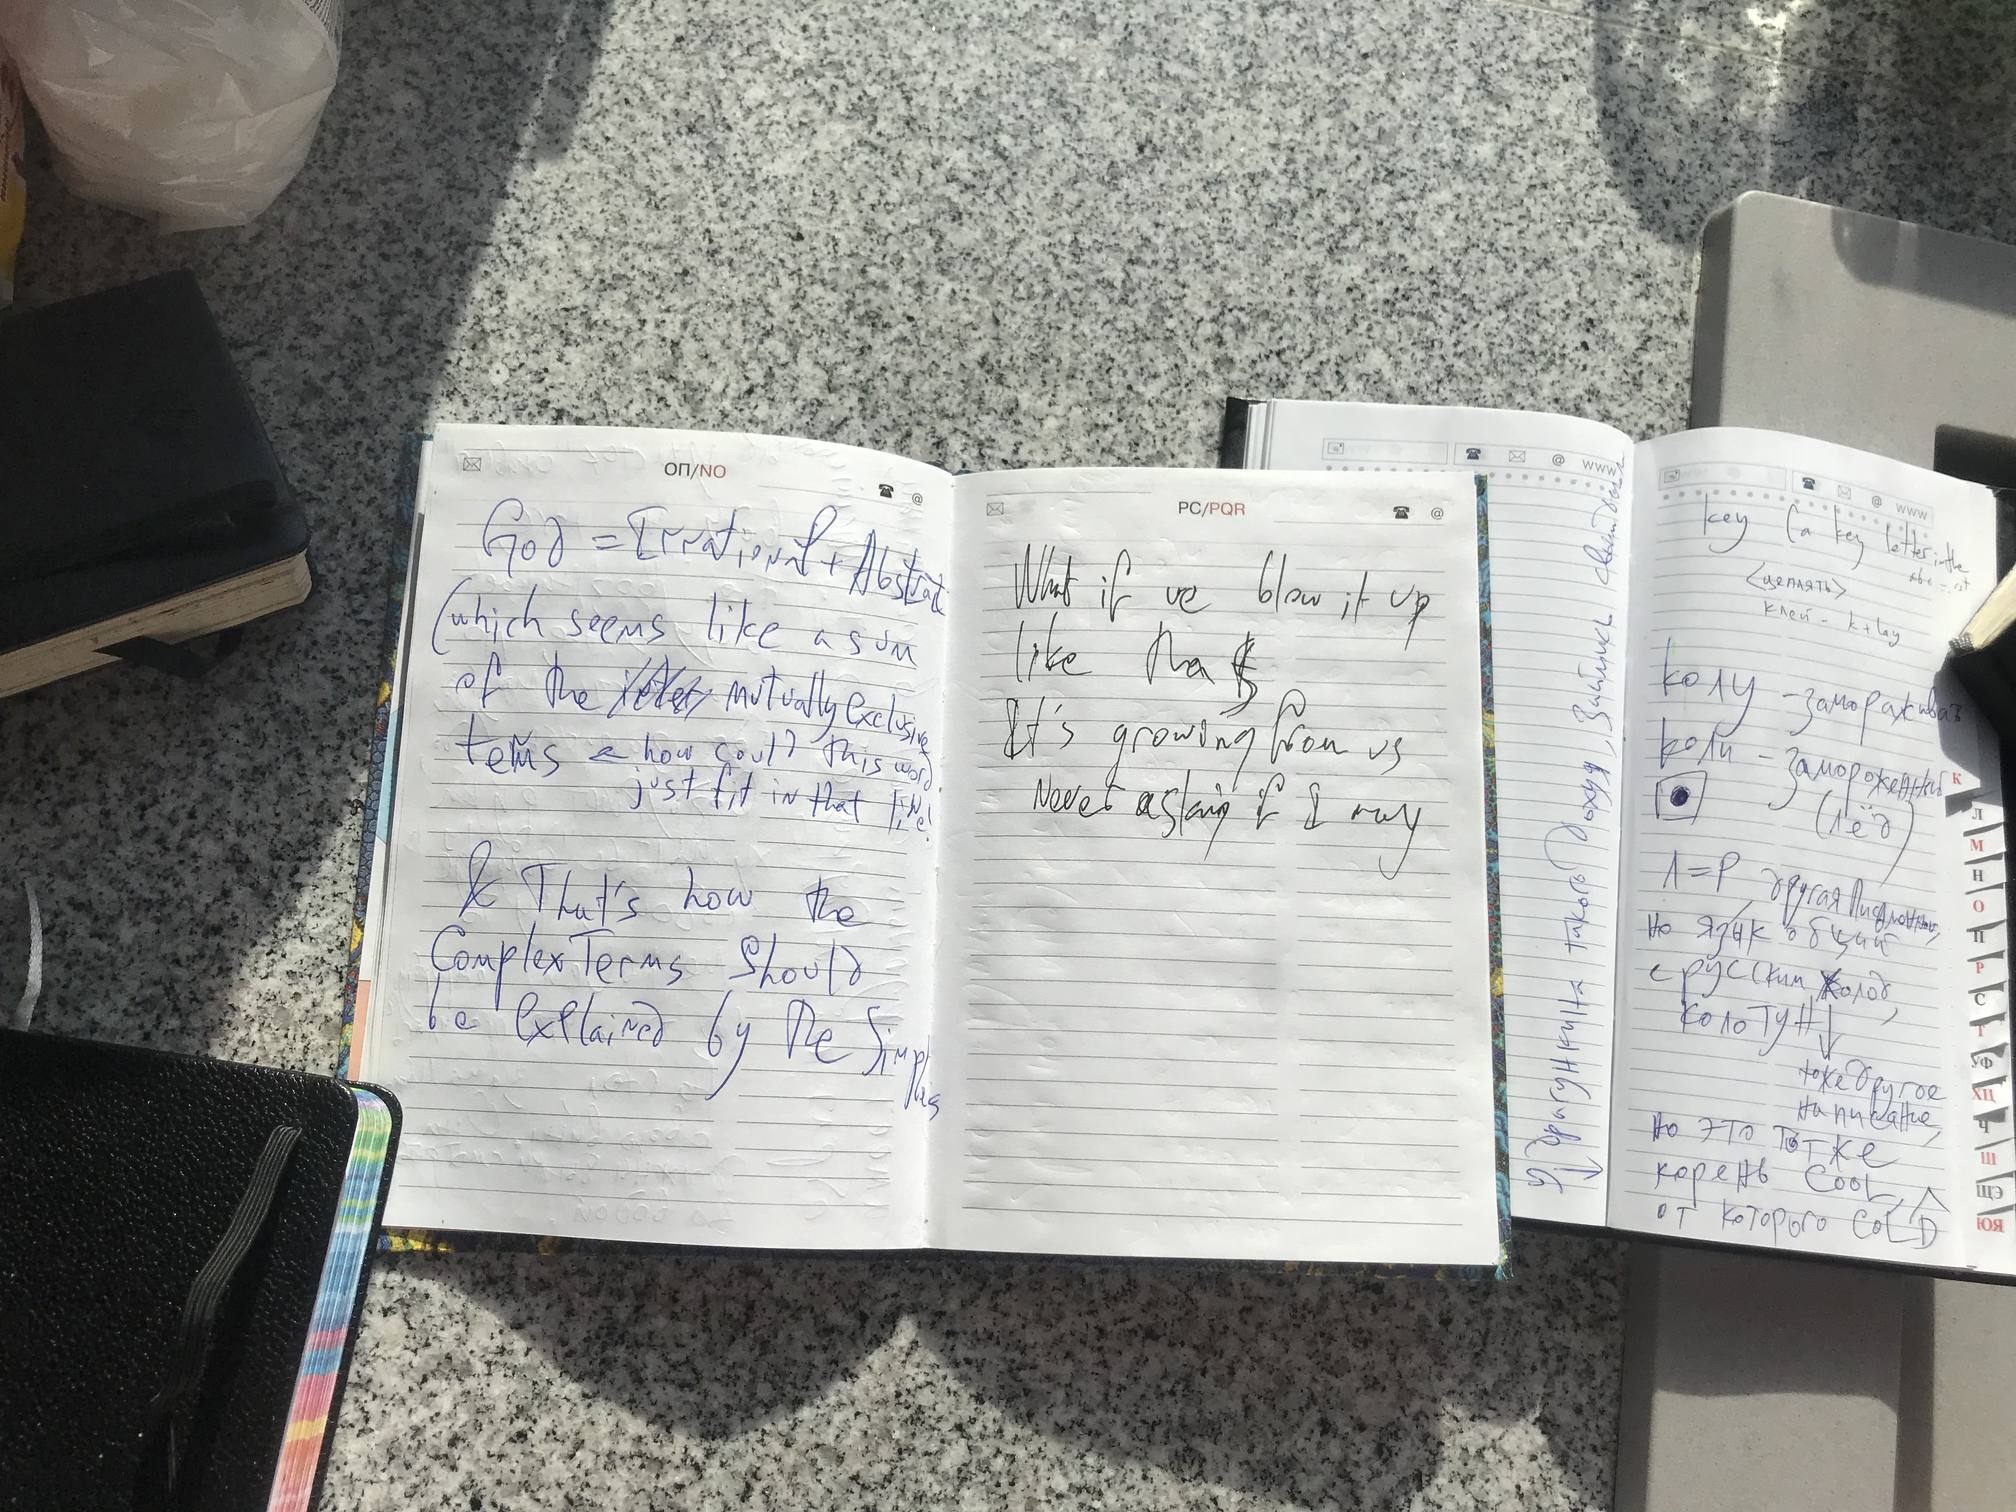 ОП/NO
@
God = Irrational + Abstract
(which seems like a sum
of the mutually exclusive
terms ← how could this word
just fit in that line!
& That's how the
Complex Terms Should
be explained by the Simple
PC/PQR
@
What if we blow it up
like that
It's growing from us
Never asking if I may
@ www
у
такого
@ www
key (a key letter in the
<цеплять>
клей - k + lay
колу - замораживать
коли - замороженный
(лёд)
Л=Р, другая письменность,
но язык общий
с русским холод,
колотун
тоже другое
написание,
но это тот же
корень COOL,
от которого COLD
К
Л
М
Н
О
П
Р
С
Т
УФ
ХЦ
Ч
Ш
ЩЭ
ЮЯ